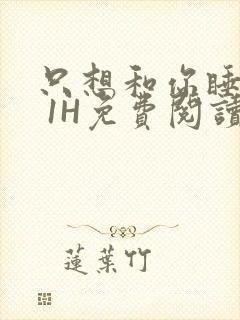 只想和你睡
1H免費閱讀
蓮葉竹